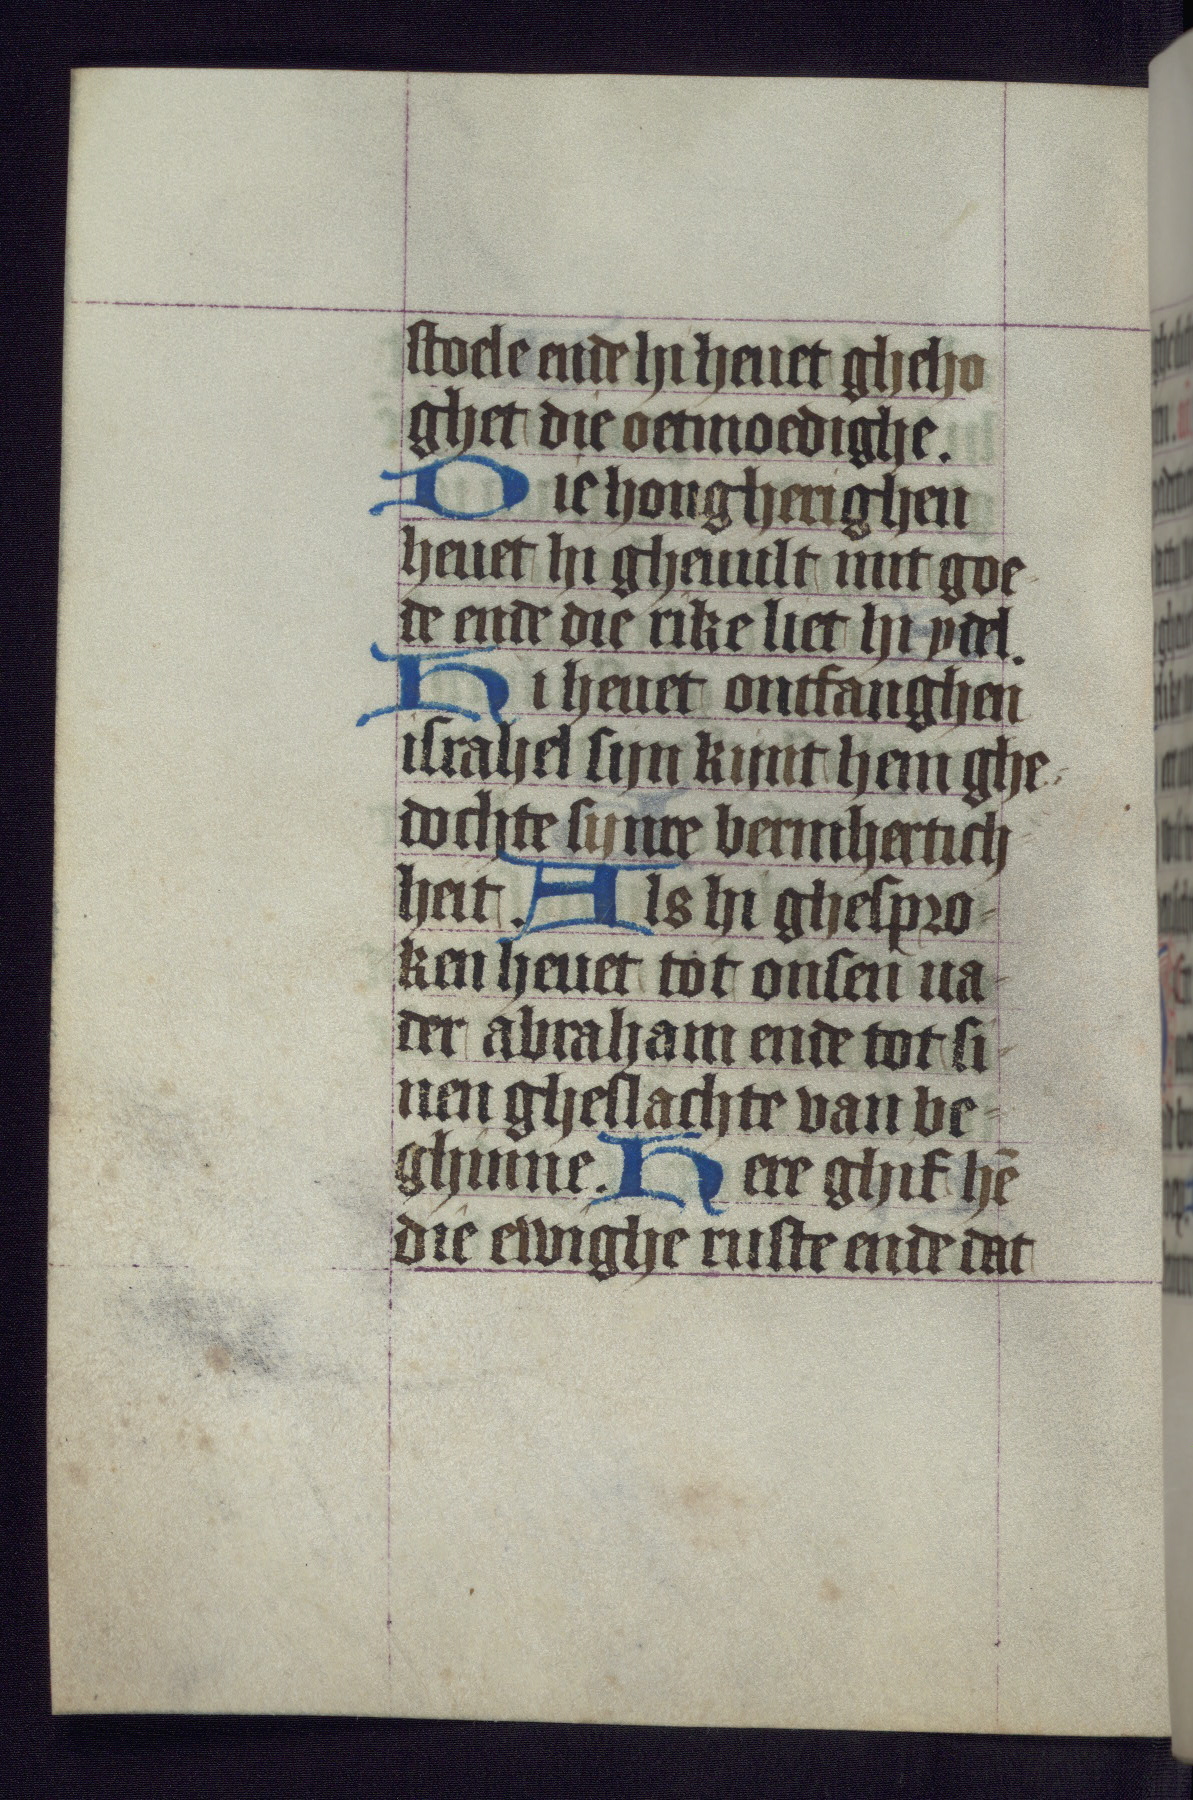 stoele ende hi heuet gheho
ghet die oetmoedighe.
Die hongherighen
heuet hi gheuult mit goe-
de ende die rike liet hi ydel.
Hi heuet ontfanghen
israhel sijn kijnt hem ghe-
dochte sijnre bermhertich
heit. Als hi ghespro-
ken heuet tot onsen va-
der abraham ende tot si-
nen gheslachte van be-
ghinne. Here ghif hē
die ewighe ruste ende dat